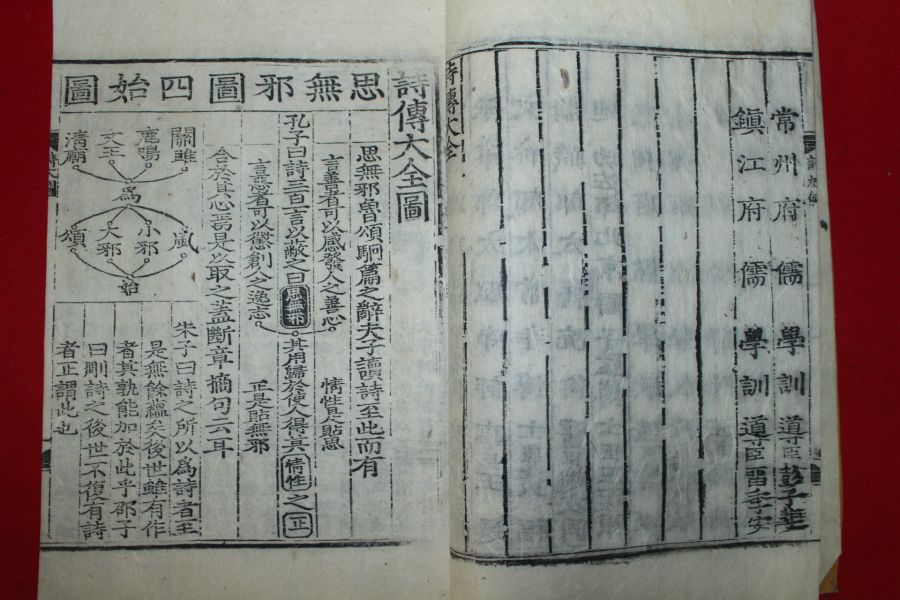 常州府儒學訓導臣彭子斐
鎮江府儒學訓導臣留季安
詩傳大全
詩傳大全圖
思無邪圖
四始圖
思無邪魯頌駉篇之辭夫子讀詩至此而有
合於其心焉是以取之蓋斷章摘句云耳
言善者可以感發人之善心
情性是貼思
孔子曰詩三百一言以蔽之曰思無邪
其用歸於使人得其情性之正
言惡者可以懲創人之逸志
正是貼無邪
關雎
鹿鳴
文王
清廟
為
風
小邪
大邪
頌
始
朱子曰詩之所以為詩者至
是無餘蘊矣後世雖有作
者其孰能加於此乎邵子
曰刪詩之後世不復有詩
者正謂此也